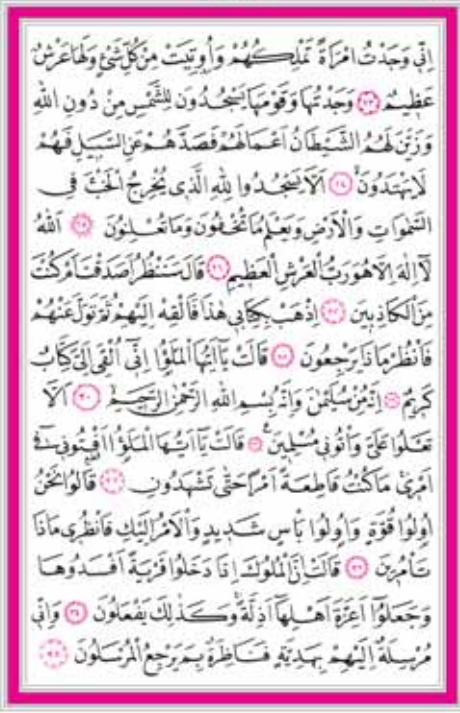 اِنّ۪ي وَجَدْتُ امْرَاَةً تَمْلِكُهُمْ وَاُو۫تِيَتْ مِنْ كُلِّ شَيْءٍ وَلَهَا عَرْشٌ
عَظ۪يمٌ ﴿٢٣﴾ وَجَدْتُهَا وَقَوْمَهَا يَسْجُدُونَ لِلشَّمْسِ مِنْ دُونِ اللّٰهِ
وَزَيَّنَ لَهُمُ الشَّيْطَانُ اَعْمَالَهُمْ فَصَدَّهُمْ عَنِ السَّب۪يلِ فَهُمْ
لَا يَهْتَدُونَ ﴿٢٤﴾ اَلَّا يَسْجُدُوا لِلّٰهِ الَّذ۪ي يُخْرِجُ الْخَبْءَ فِي
السَّمٰوَاتِ وَالْاَرْضِ وَيَعْلَمُ مَا تُخْفُونَ وَمَا تُعْلِنُونَ ﴿٢٥﴾ اَللّٰهُ
لَٓا اِلٰهَ اِلَّا هُوَ رَبُّ الْعَرْشِ الْعَظ۪يمِ ﴿٢٦﴾ قَالَ سَنَنْظُرُ اَصَدَقْتَ اَمْ كُنْتَ
مِنَ الْكَاذِب۪ينَ ﴿٢٧﴾ اِذْهَبْ بِكِتَاب۪ي هٰذَا فَاَلْقِهْ اِلَيْهِمْ ثُمَّ تَوَلَّ عَنْهُمْ
فَانْظُرْ مَاذَا يَرْجِعُونَ ﴿٢٨﴾ قَالَتْ يَٓا اَيُّهَا الْمَلَؤُا اِنّ۪ٓي اُلْقِيَ اِلَيَّ كِتَابٌ
كَر۪يمٌ ﴿٢٩﴾ اِنَّهُ مِنْ سُلَيْمٰنَ وَاِنَّهُ بِسْمِ اللّٰهِ الرَّحْمٰنِ الرَّح۪يمِ ﴿٣٠﴾ اَلَّا
تَعْلُوا عَلَيَّ وَأْتُون۪ي مُسْلِم۪ينَ ﴿٣١﴾ قَالَتْ يَٓا اَيُّهَا الْمَلَؤُا اَفْتُون۪ي ف۪ٓي
اَمْر۪ي مَا كُنْتُ قَاطِعَةً اَمْرًا حَتّٰى تَشْهَدُونِ ﴿٣٢﴾ قَالُوا نَحْنُ
اُو۬لُوا قُوَّةٍ وَاُو۬لُوا بَأْسٍ شَد۪يدٍ وَالْاَمْرُ اِلَيْكِ فَانْظُر۪ي مَاذَا
تَأْمُر۪ينَ ﴿٣٣﴾ قَالَتْ اِنَّ الْمُلُوكَ اِذَا دَخَلُوا قَرْيَةً اَفْسَدُوهَا
وَجَعَلُٓوا اَعِزَّةَ اَهْلِهَٓا اَذِلَّةً وَكَذٰلِكَ يَفْعَلُونَ ﴿٣٤﴾ وَاِنّ۪ي
مُرْسِلَةٌ اِلَيْهِمْ بِهَدِيَّةٍ فَنَاظِرَةٌ بِمَ يَرْجِعُ الْمُرْسَلُونَ ﴿٣٥﴾